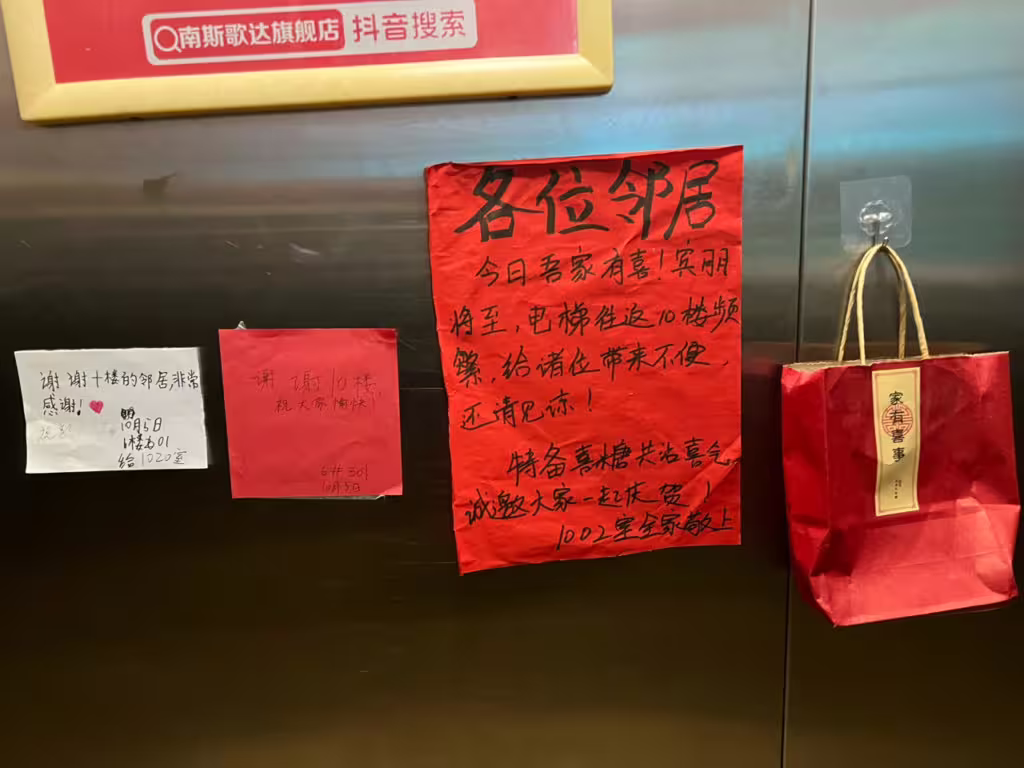 南斯歌达旗舰店 抖音搜索
各位邻居
今日吾家有喜！宾朋
将至，电梯往返10楼频
繁，给诸位带来不便，
还请见谅！
特备喜糖共沾喜气，
诚邀大家一起庆贺！
1002室全家敬上
谢谢十楼的邻居非常
感谢！
10月5日
给1020室
谢谢10楼，
祝大家愉快！
301
10月5日
家有喜事